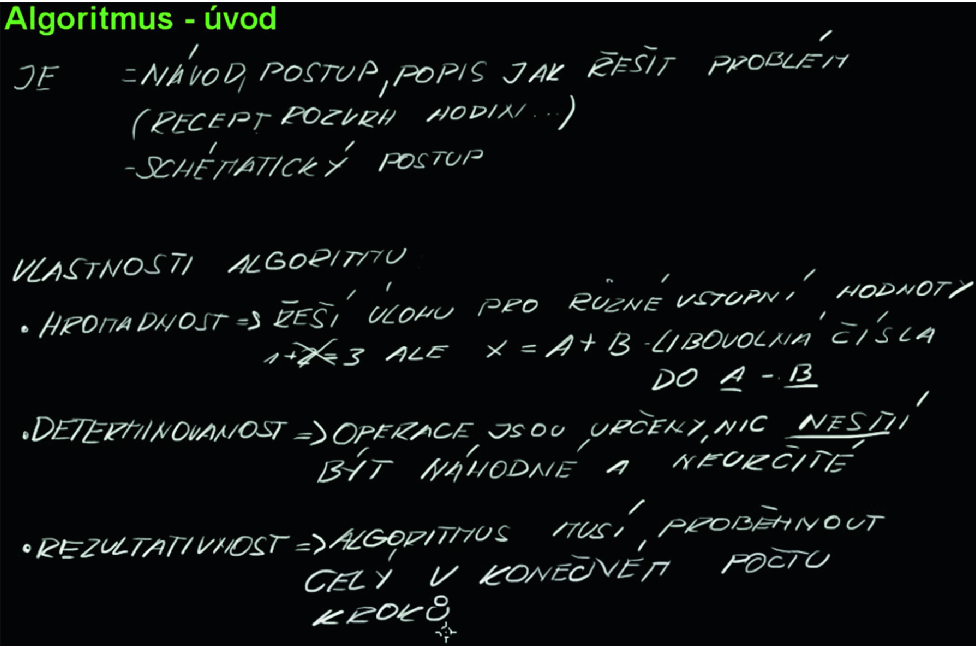 Algoritmus - úvod
JE = NÁVOD, POSTUP, POPIS JAK ŘEŠIT PROBLÉM
(RECEPT ROZVRH HODIN...)
-SCHÉMATICKÝ POSTUP
VLASTNOSTI ALGORITMU
• HROMADNOST => ŘEŠÍ ÚLOHU PRO RŮZNÉ VSTUPNÍ HODNOTY
1+2=3 ALE X = A + B - LIBOVOLNÁ ČÍSLA
DO A - B
• DETERMINOVANOST => OPERACE JSOU URČENY, NIC NESMÍ
BÝT NÁHODNÉ A NEURČITÉ
• REZULTATIVNOST => ALGORITMUS MUSÍ PROBĚHNOUT
CELÝ V KONEČNÉM POČTU
KROKŮ